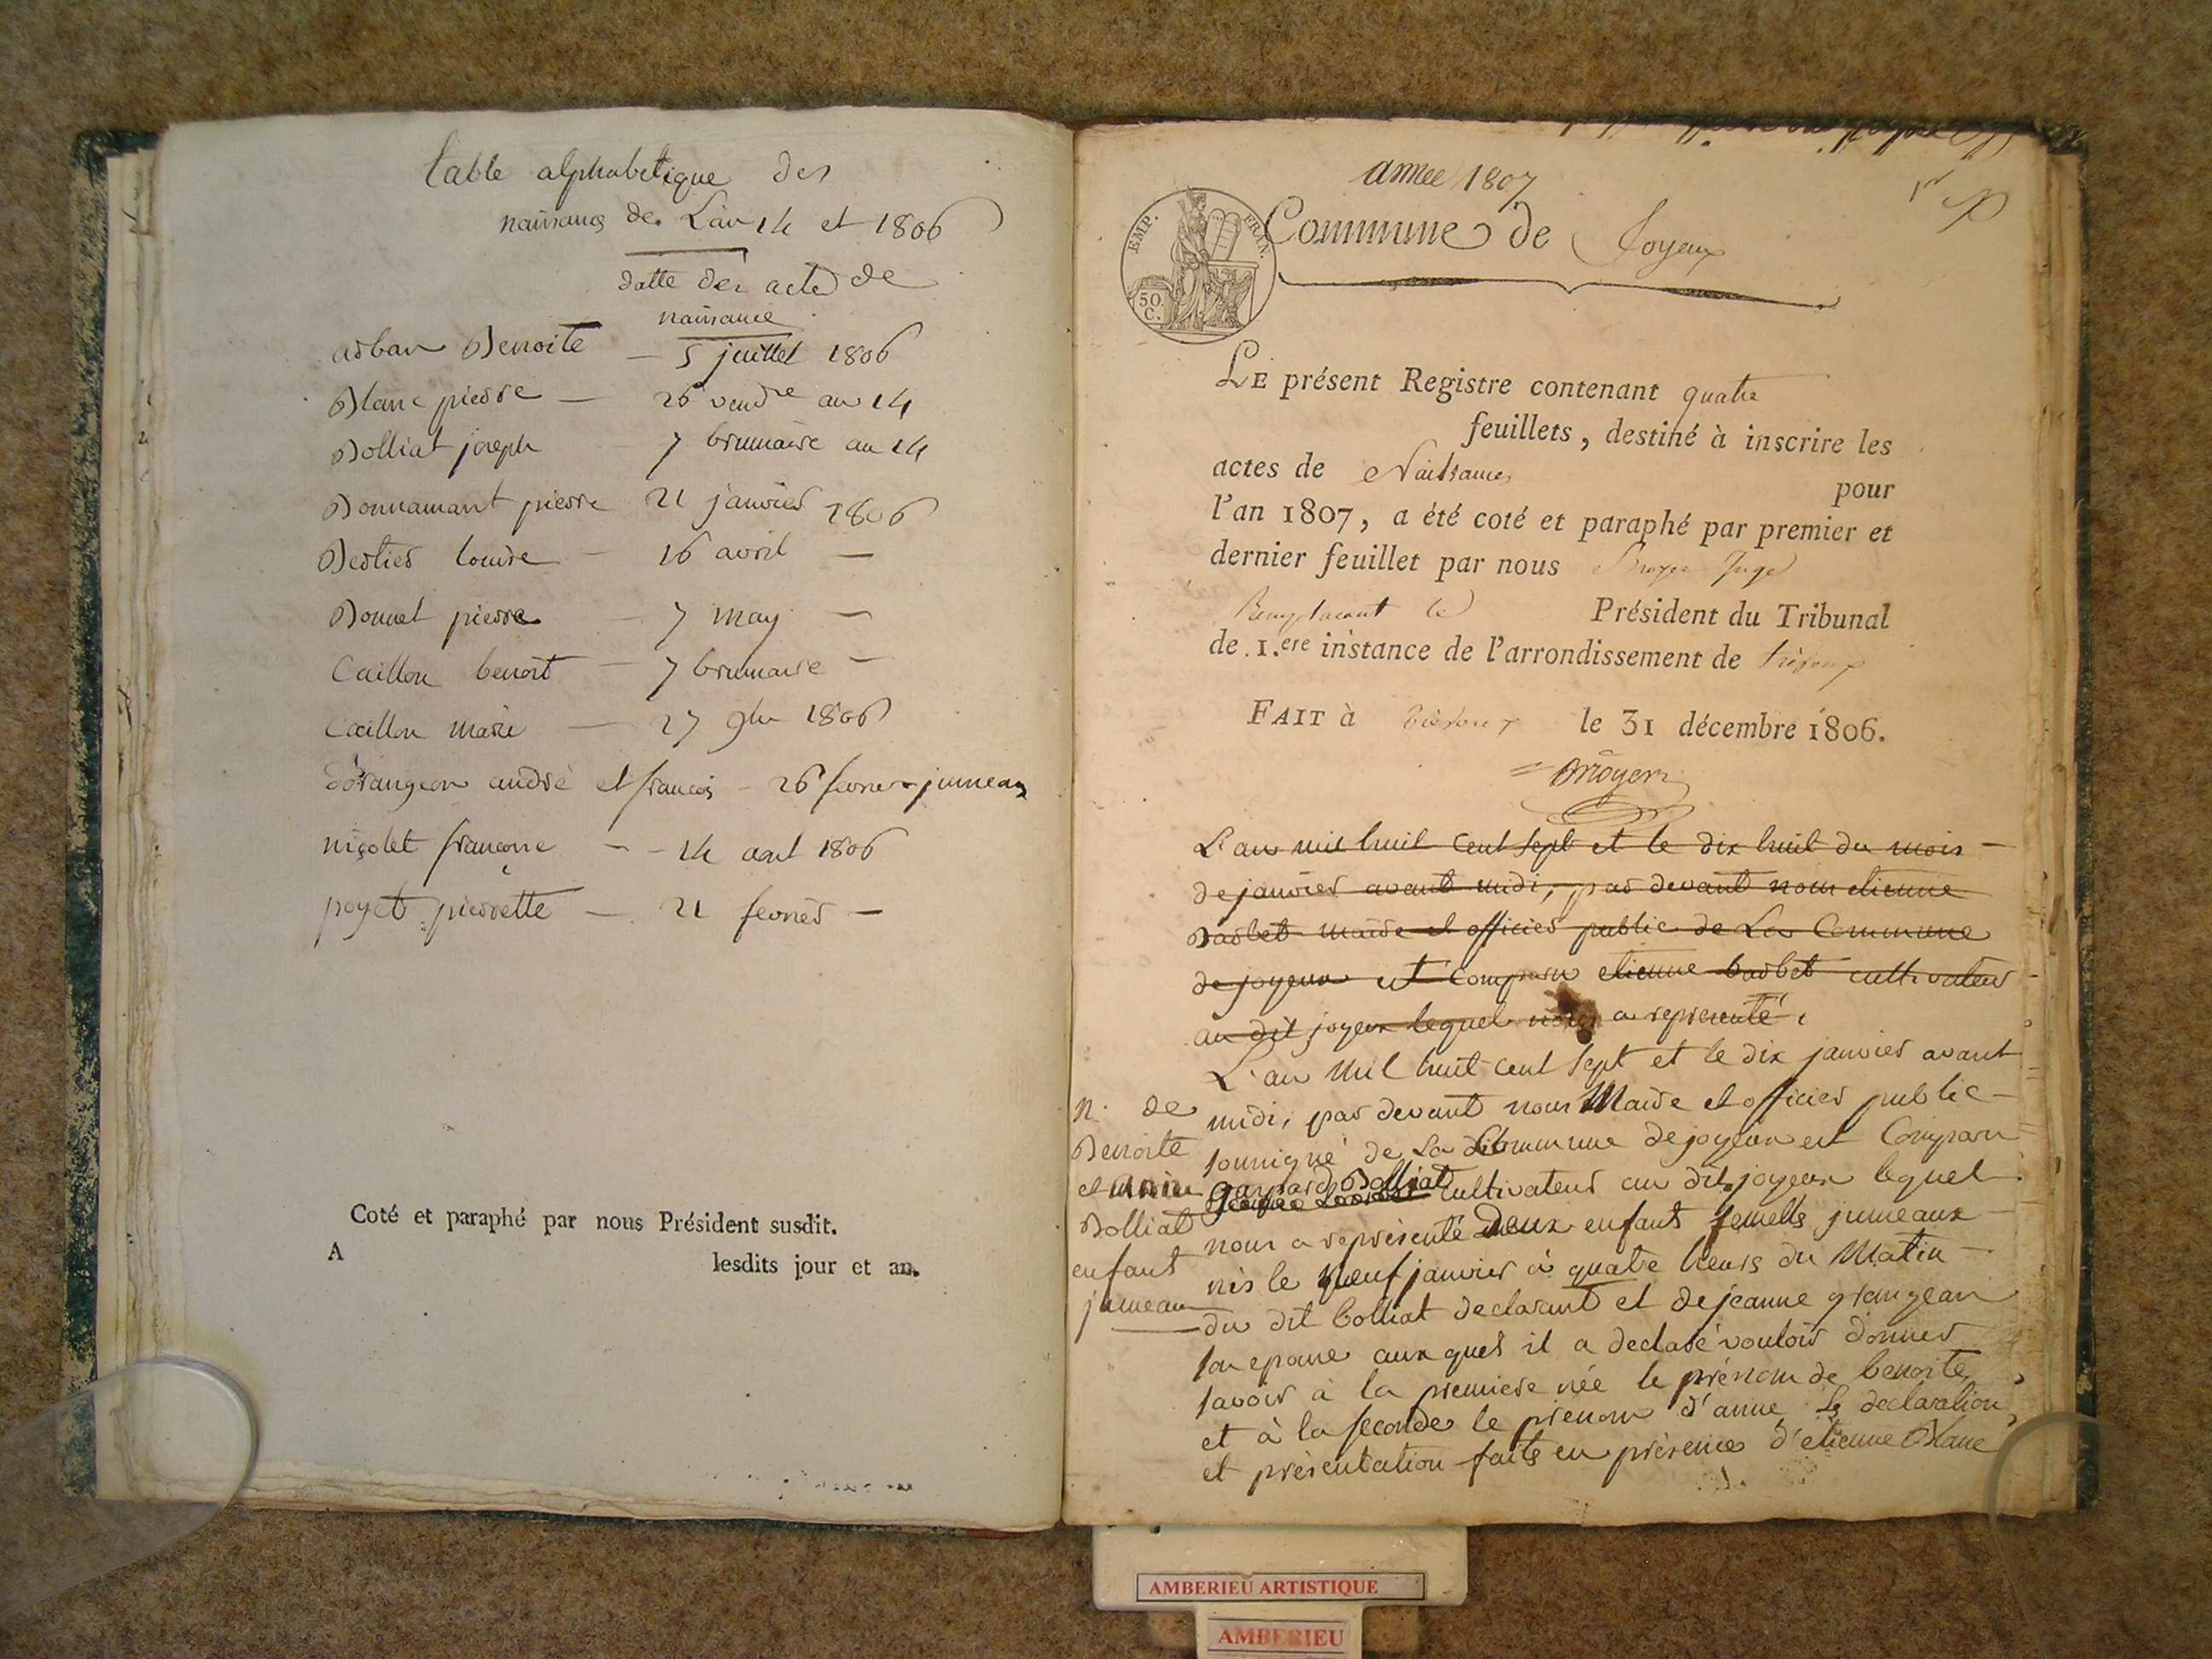 table alphabetique des
naissances de L'an 14 et 1806
datte des actes de
naissance
arban Benoite — 5 juillet 1806
Blanc pierre — 26 vendre an 14
Bolliat joseph — 7 brumaire an 14
Bonnamant pierre 21 janvier 1806
Bertier louise — 16 avril —
Bonnet pierre — 7 may —
Caillon benoit — 7 brumaire —
Caillon marie — 27 9bre 1806
andré et francois - 26 fevrier jumeaux
niçolet francoise - - 14 aout 1806
poyet pierrette — 21 fevrier —
Coté et paraphé par nous Président susdit.
A
lesdits jour et an.
annee 1807
1er
EMP. FRAN.
50 C.
Commune de Joyeux
LE présent Registre contenant quatre
feuillets, destiné à inscrire les
actes de Naissances
pour
l'an 1807, a été coté et paraphé par premier et
dernier feuillet par nous Juge
Remplacant le Président du Tribunal
de 1.ere instance de l'arrondissement de trévoux
FAIT à trévoux le 31 décembre 1806.
L'an mil huit cent sept et le dix huit du mois —
de janvier avant midi, par devant nous etienne
Barbet maire et officier public de La Commune
de joyeux est comparu etienne barbet cultivateur
au dit joyeux lequel nous a representé
L'an mil huit cent sept et le dix janvier avant
midi, par devant nous Maire et officier public —
soussigné de La Commune de joyeux est Comparu
gaspard Bolliat cultivateur au dit joyeux lequel
nous a représenté Deux enfants femelles jumeaux
nés le neuf janvier à quatre heures du Matin —
du dit bolliat declarant et de jeanne grangean
son epouse auxquels il a declaré vouloir donner
savoir à la premiere née le prénom de benoite
et à la seconde le prenom d'anne Les declaration
et présentation faits en présence d'etienne Blanc
n. de
Benoite
et anne
Bolliat
enfant
jumeau
AMBERIEU ARTISTIQUE
AMBERIEU